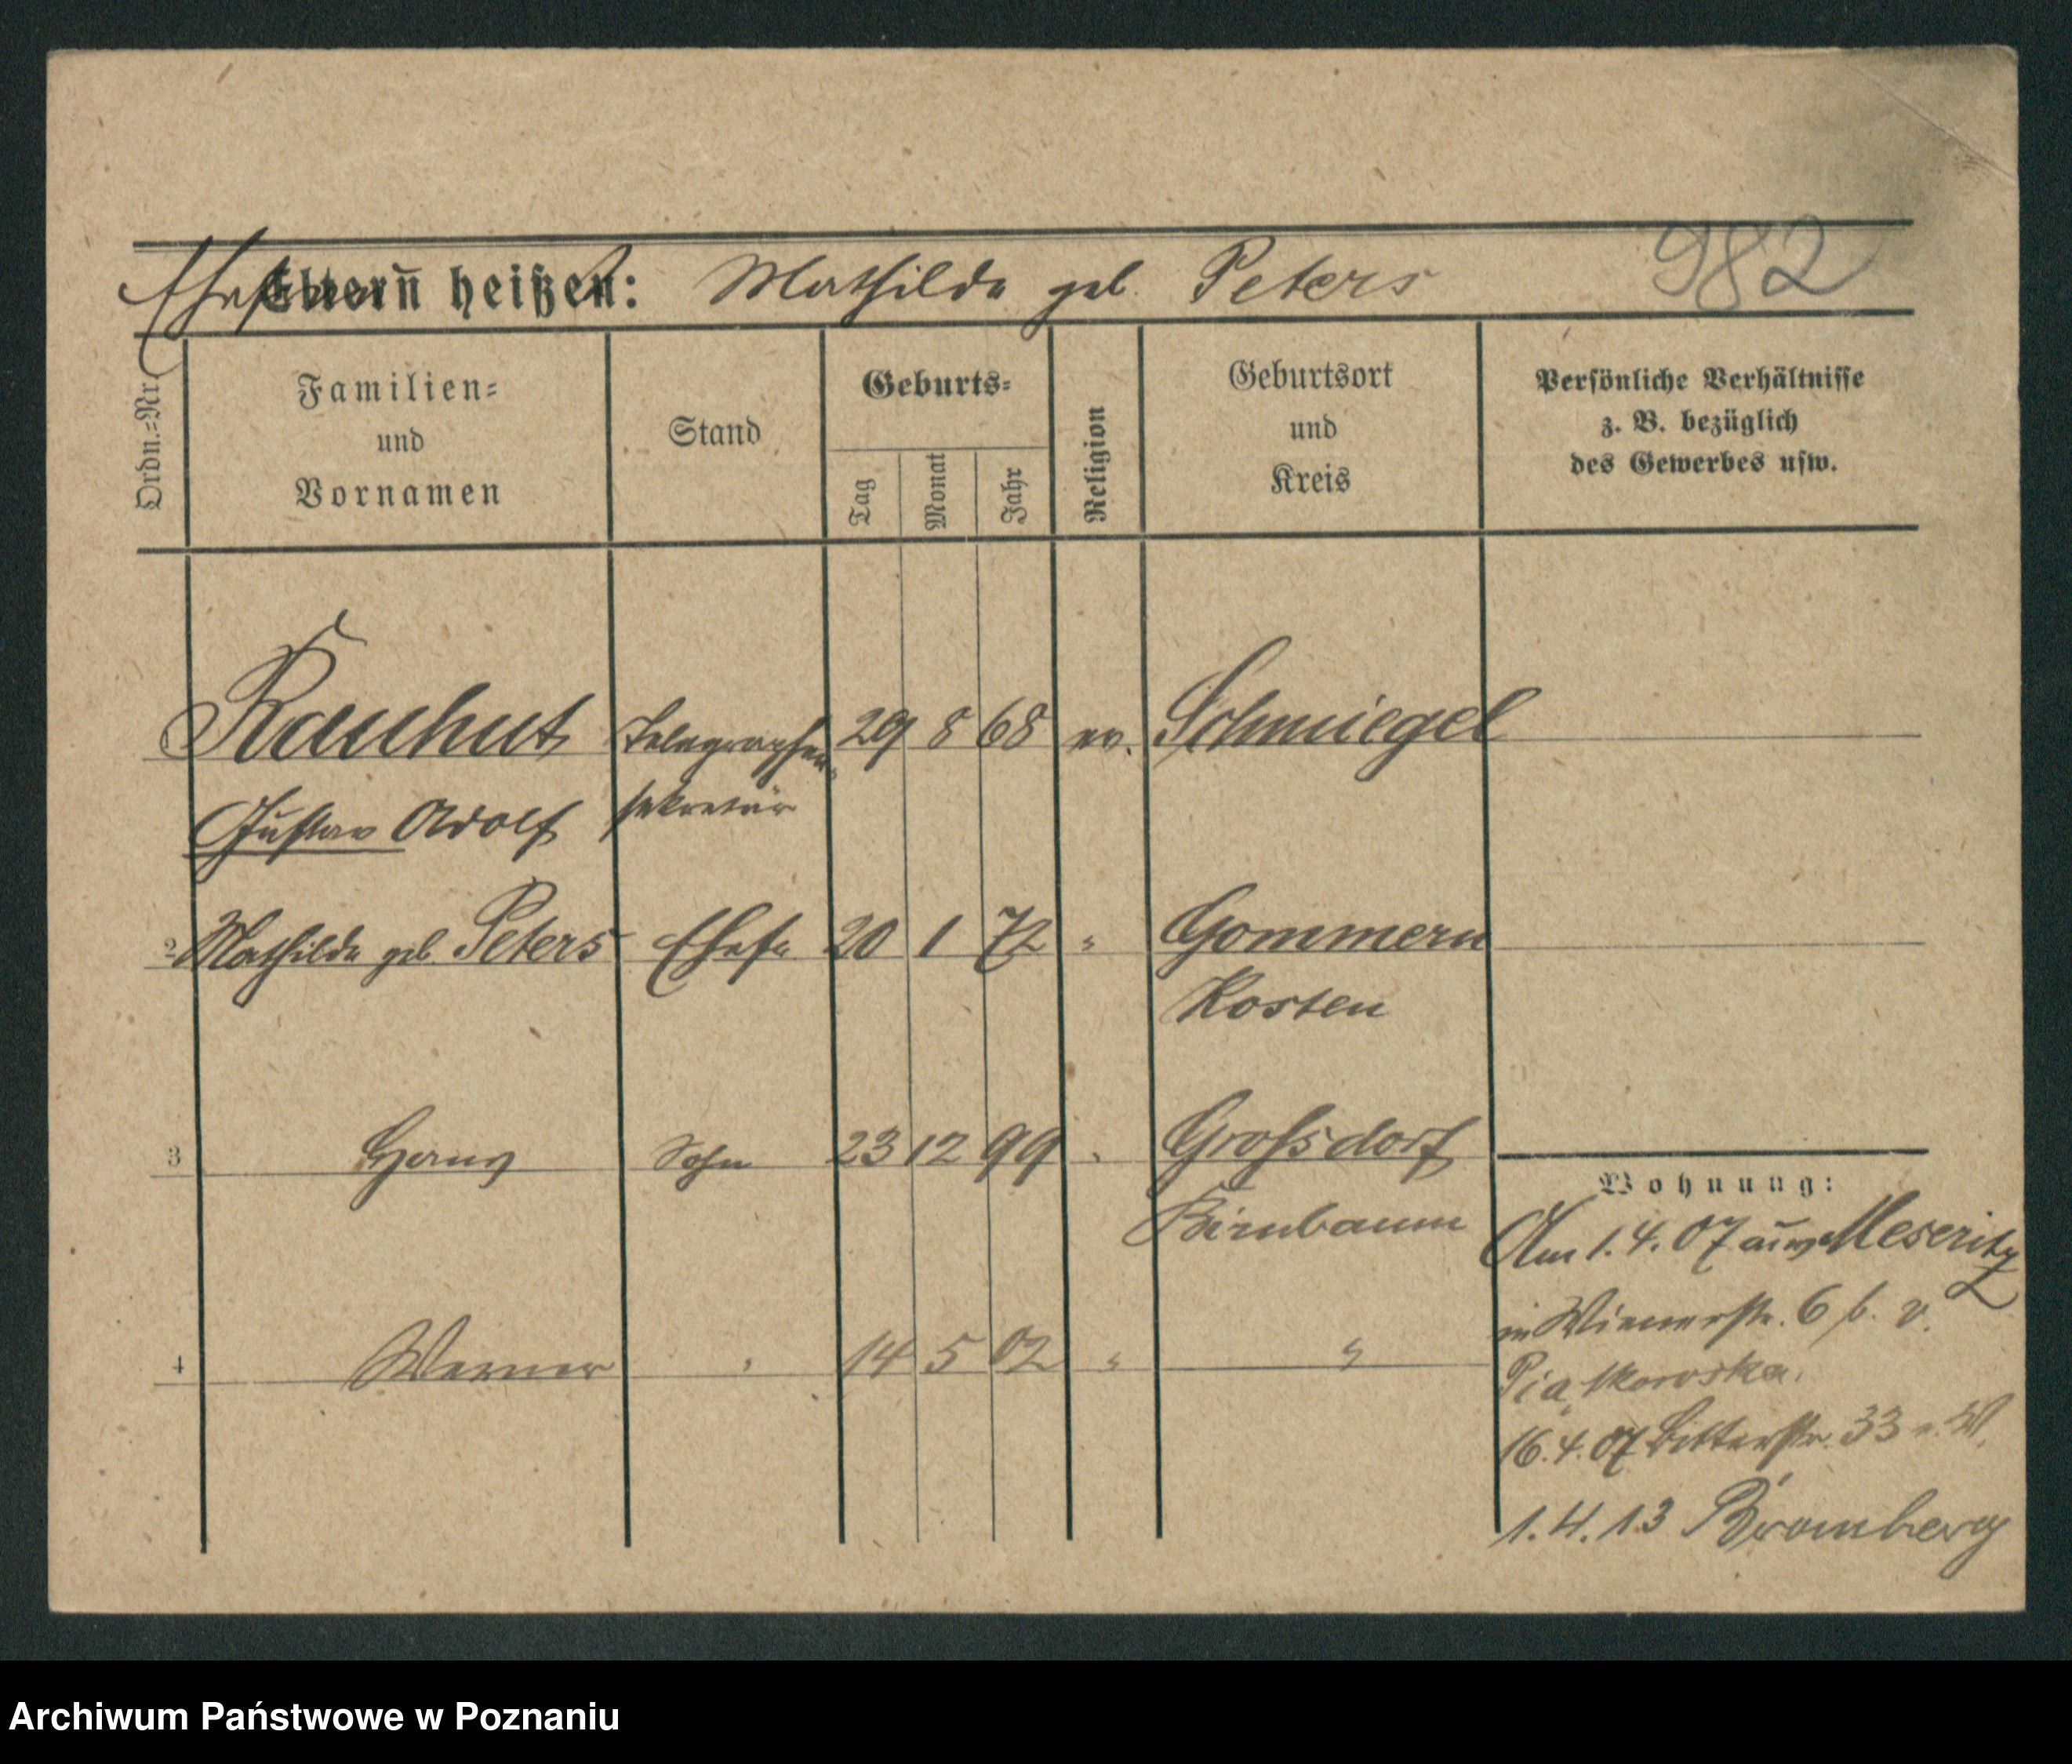 982
Ehefrau
Eltern heißen: Mathilde geb. Peters
Ordn.=Nr.
Familien=
und
Vornamen
Stand
Geburts=
Tag
Monat
Jahr
Religion
Geburtsort
und
Kreis
Persönliche Verhältnisse
z. B. bezüglich
des Gewerbes usw.
Rauhut Telegraphen- 29 8 68 ev. Schmiegel
Gustav Adolf sekretär
2 Mathilde geb. Peters Ehefr. 20 1 72 " Gommern
Kosten
3 Hans Sohn 23 12 99 " Grossdorf
Birnbaum
4 Werner " 14 5 02 " "
Wohnung:
Am 1.4.07 aus Meseritz
in Wienerstr. 6 b. v.
Piątkowska.
16.4.07 Ritterstr. 33 a. W.
1.4.13 Bromberg
Archiwum Państwowe w Poznaniu